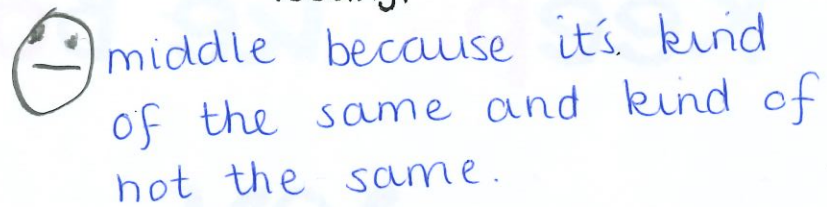 middle because it's. kind
of the same and kind of
not the same.